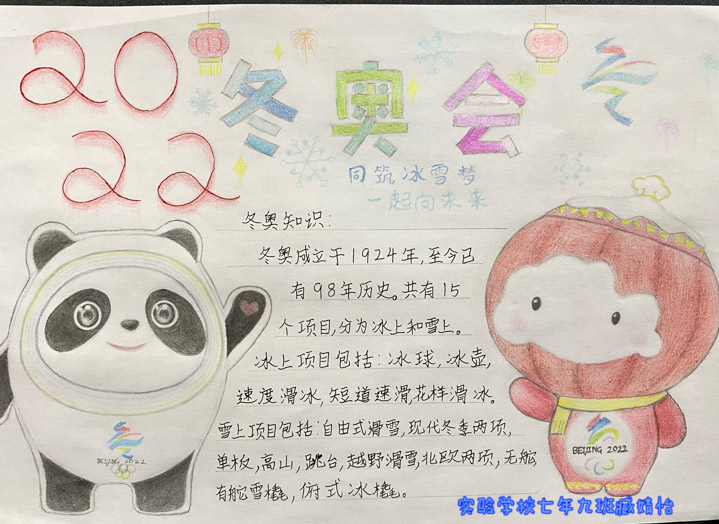 2022
冬奥会
同筑冰雪梦
一起向未来
冬奥知识:
冬奥成立于1924年,至今已
有98年历史。共有15
个项目,分为冰上和雪上。
冰上项目包括:冰球,冰壶,
速度滑冰,短道速滑,花样滑冰。
雪上项目包括:自由式滑雪,现代冬季两项,
单板,高山,跳台,越野滑雪,北欧两项,无舵
有舵雪橇,俯式冰橇。
BEIJING 2022
BEIJING 2022
实验学校七年九班臧婧怡